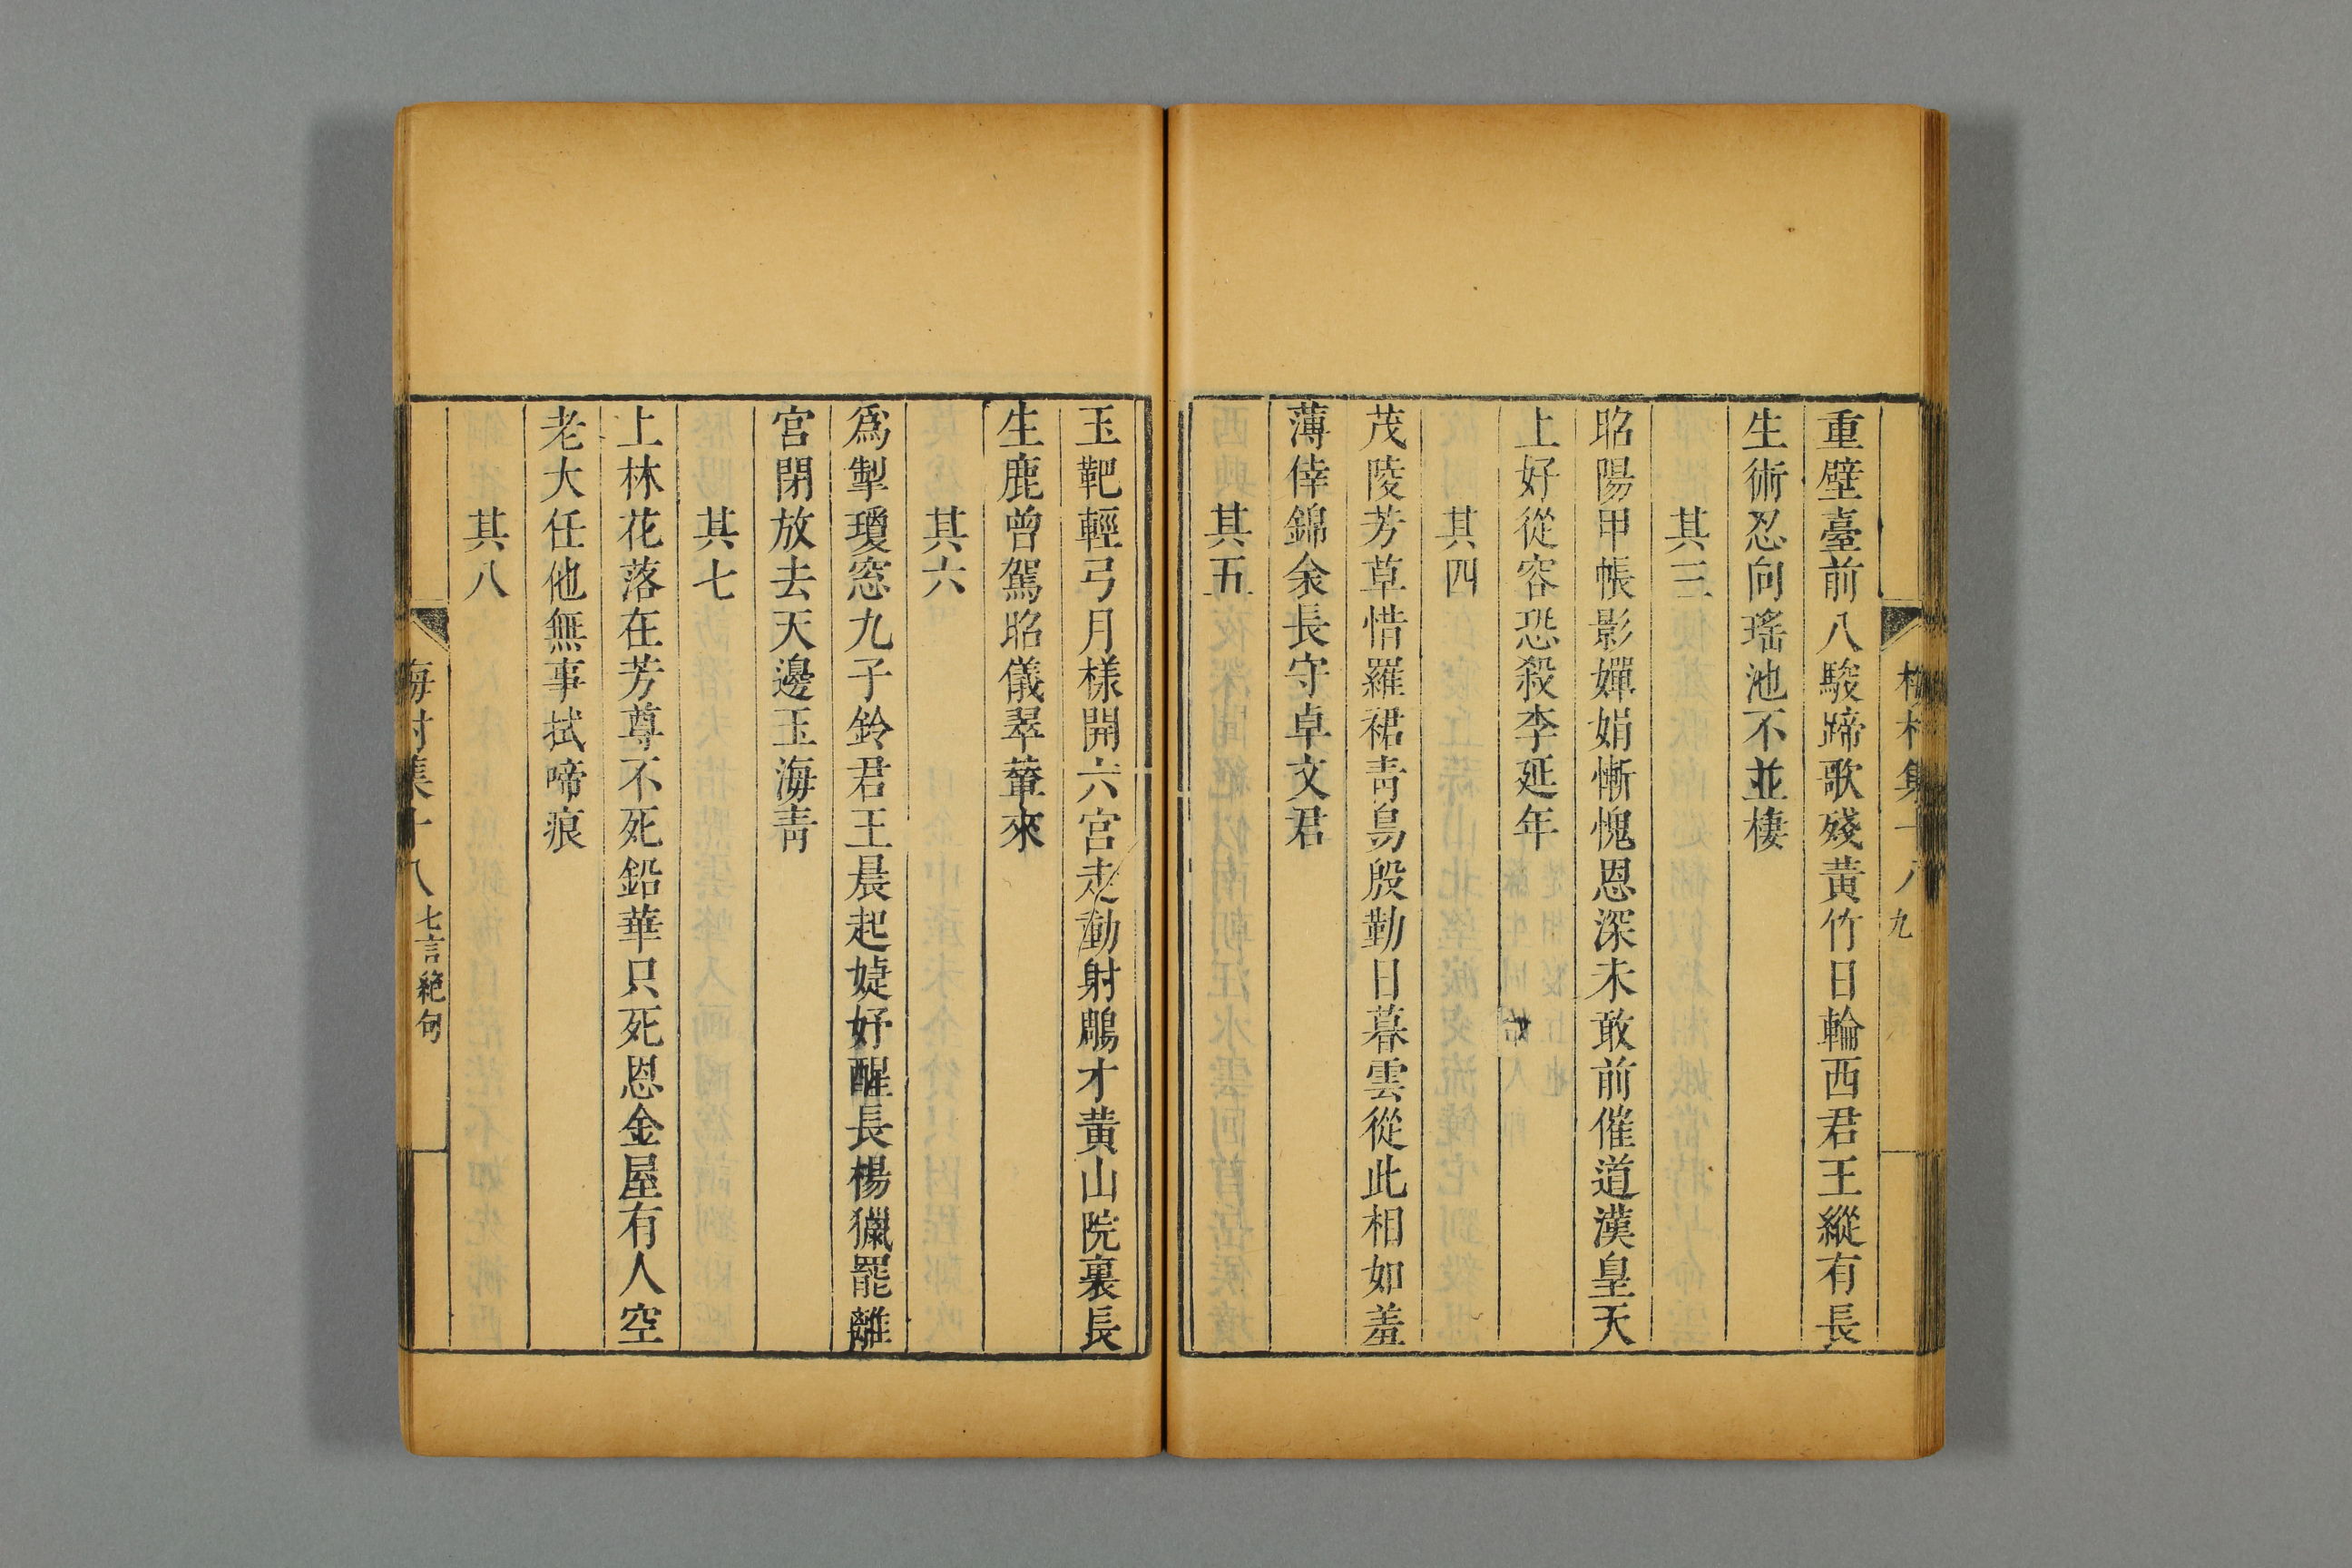 梅村集十八
九
重壁臺前八駿蹄歌殘黃竹日輪西君王縱有長
生術忍向瑤池不並棲
其三
昭陽甲帳影嬋娟慚愧恩深未敢前催道漢皇天
上好從容恐殺李延年
其四
茂陵芳草惜羅裙青鳥殷勤日暮雲從此相如羞
薄倖錦衾長守卓文君
其五
玉靶輕弓月樣開六宮走動射鵰才黃山院裏長
生鹿曾駕昭儀翠輦來
其六
爲掣瓊窓九子鈴君王晨起婕妤醒長楊獵罷離
宮閉放去天邊玉海青
其七
上林花落在芳尊不死鉛華只死恩金屋有人空
老大任他無事拭啼痕
其八
梅村集十八
七言絕句